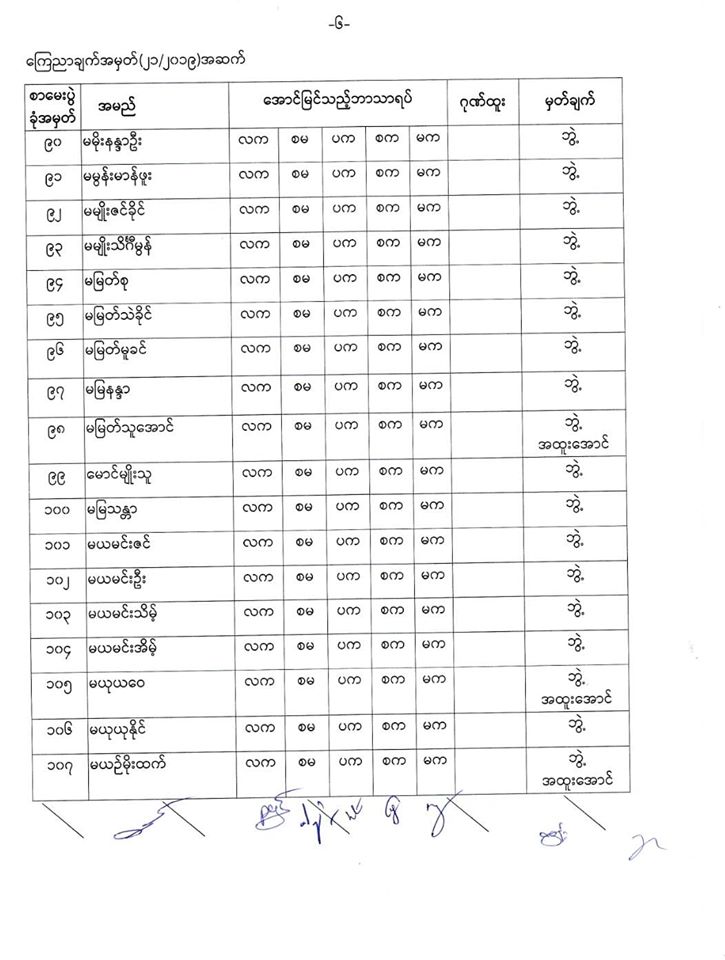 -၆-
ကြေညာချက်အမှတ်(၂၁/၂၀၁၉)အဆက်
စာမေးပွဲ ခုံအမှတ် အမည် အောင်မြင်သည့်ဘာသာရပ် ဂုဏ်ထူး မှတ်ချက်
၉၀ မမိုးနန္ဒာဦး လက စမ ပက စက မက ဘွဲ့
၉၁ မမွန်းမာန်ဖူး လက စမ ပက စက မက ဘွဲ့
၉၂ မမျိုးဇင်ခိုင် လက စမ ပက စက မက ဘွဲ့
၉၃ မမျိုးသိင်္ဂီမွန် လက စမ ပက စက မက ဘွဲ့
၉၄ မမြတ်စု လက စမ ပက စက မက ဘွဲ့
၉၅ မမြတ်သဲခိုင် လက စမ ပက စက မက ဘွဲ့
၉၆ မမြတ်မူခင် လက စမ ပက စက မက ဘွဲ့
၉၇ မမြနန္ဒာ လက စမ ပက စက မက ဘွဲ့
၉၈ မမြတ်သူအောင် လက စမ ပက စက မက ဘွဲ့
အထူးအောင်
၉၉ မောင်မျိုးသူ လက စမ ပက စက မက ဘွဲ့
၁၀၀ မမြသန္တာ လက စမ ပက စက မက ဘွဲ့
၁၀၁ မယမင်းဇင် လက စမ ပက စက မက ဘွဲ့
၁၀၂ မယမင်းဦး လက စမ ပက စက မက ဘွဲ့
၁၀၃ မယမင်းသိမ့် လက စမ ပက စက မက ဘွဲ့
၁၀၄ မယမင်းအိမ့် လက စမ ပက စက မက ဘွဲ့
၁၀၅ မယုယဝေ လက စမ ပက စက မက ဘွဲ့
အထူးအောင်
၁၀၆ မယုယုနိုင် လက စမ ပက စက မက ဘွဲ့
၁၀၇ မယဉ်မိုးထက် လက စမ ပက စက မက ဘွဲ့
အထူးအောင်